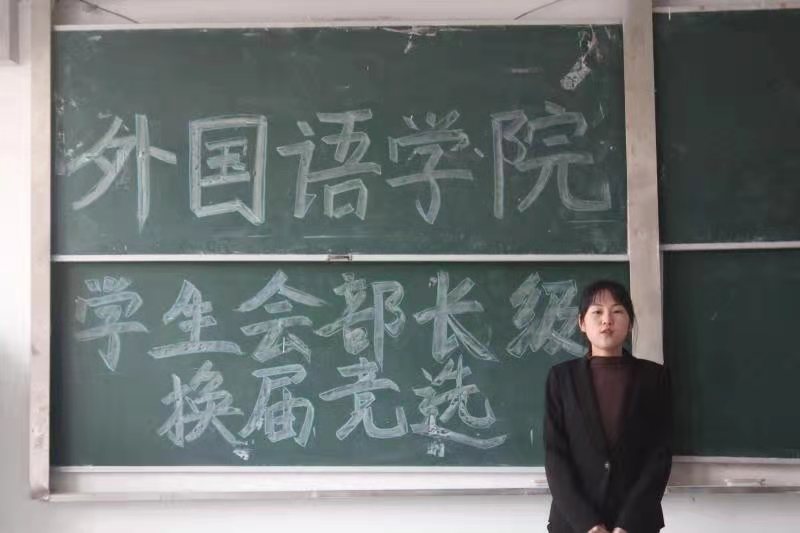 外国语学院
学生会部长级
换届竞选